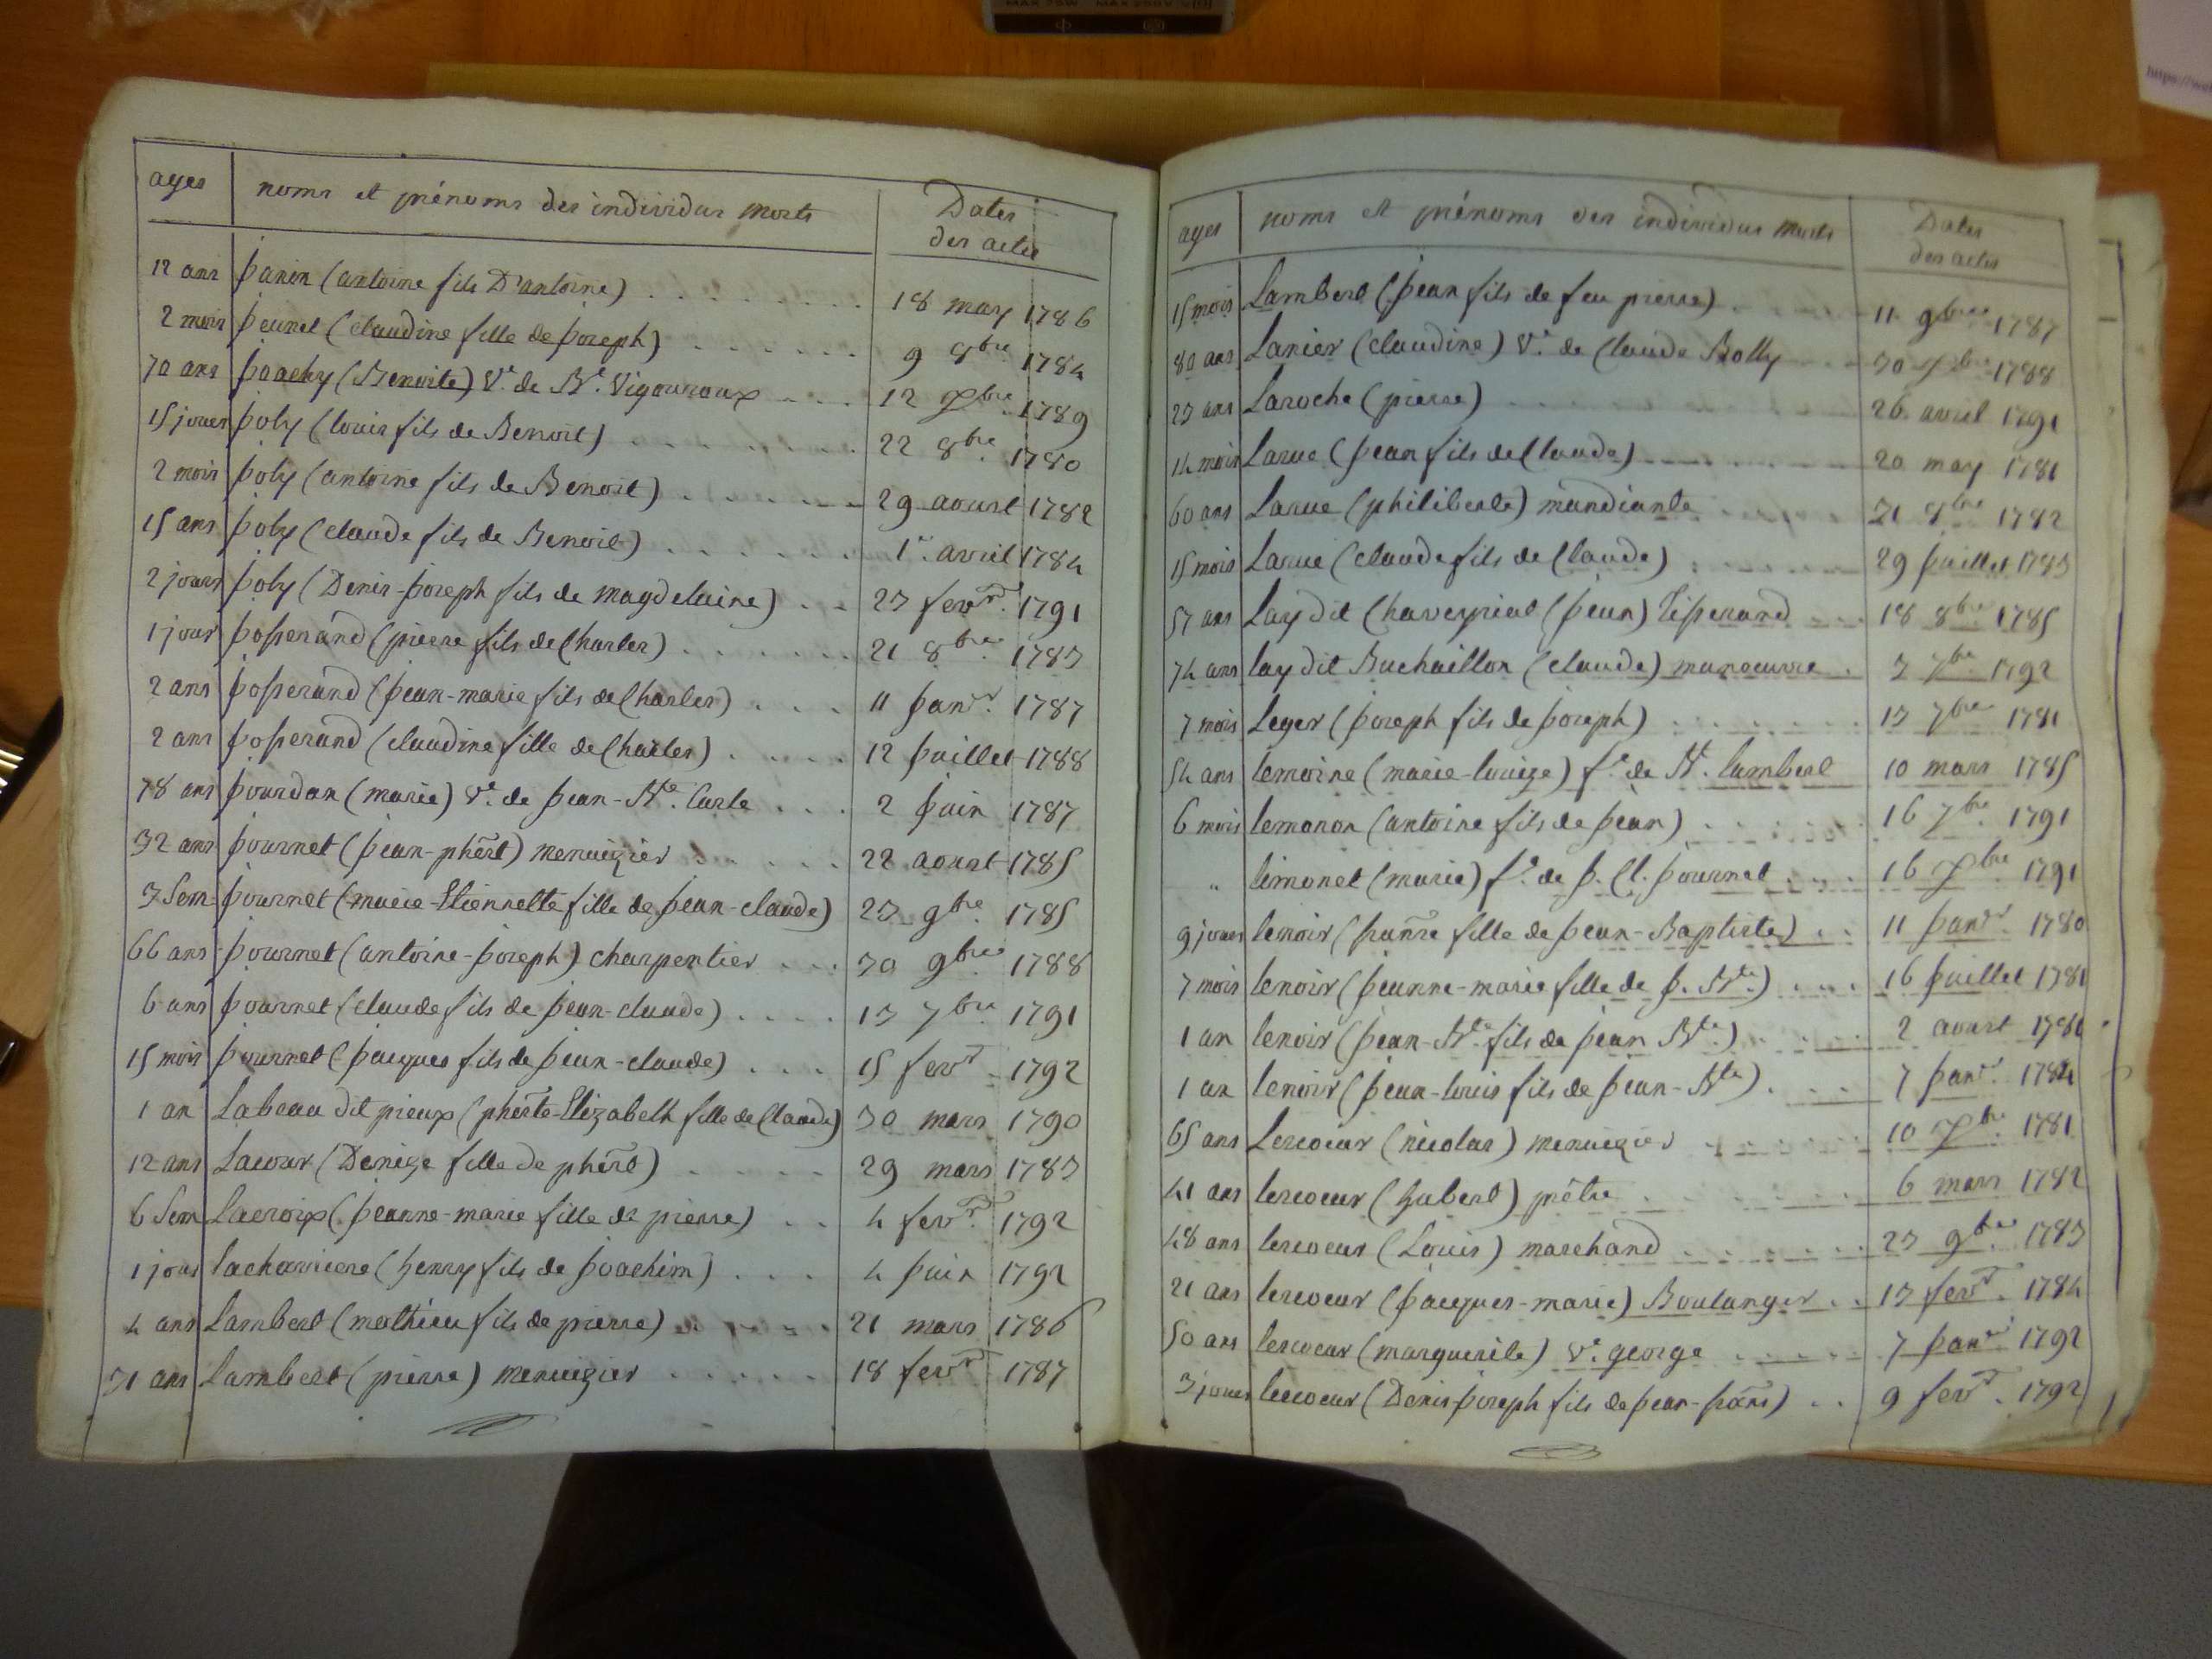 ages noms et prénoms des individus morts Dates
des actes
12 ans Janin (antoine fils D'antoine) 18 may 1786
2 mois Jeunet (claudine fille de Joseph) 9 8bre 1784
70 ans Joachy (Benoite) Ve. de Bt. Vigouroux 12 Xbre 1789
15 jours Joly (louis fils de Benoit) 22 8bre. 1780
2 mois Joly (antoine fils de Benoit) 29 aoust 1782
15 ans Joly (claude fils de Benoit) 1er. avril 1784
2 jours Joly (Denis-Joseph fils de magdelaine) 23 fevr. 1791
1 jour Josserand (pierre fils de Charles) 21 8bre. 1783
2 ans Josserand (Jean-marie fils de Charles) 11 Janvr. 1787
2 ans Josserand (claudine fille de Charles) 12 Juillet 1788
78 ans Jourdan (marie) Ve. de Jean-Bte. Carle 2 Juin 1787
32 ans Journet (Jean-phert) menuizier 22 aoust 1785
3 Sem Journet (marie-Etiennette fille de Jean-claude) 23 9bre. 1785
66 ans Journet (antoine-Joseph) charpentier 30 9bre 1788
6 ans Journet (claude fils de Jean-claude) 13 7bre. 1791
15 mois Journet (Jacques fils de Jean-claude) 15 fevr. 1792
1 an Labeau dit pieux (pherte-Elizabeth fille de Claude) 30 mars 1790
12 ans Lacour (Denize fille de phert) 29 mars 1783
6 Sem Lacroix (Jeanne-marie fille de pierre) 4 fevr. 1792
1 jour lacharriere (henry fils de Joachim) 4 Juin 1792
4 ans Lambert (mathieu fils de pierre) 21 mars 1786
31 ans Lambert (pierre) menuizier 18 fevr. 1787
ages noms et prénoms des individus morts Dates
des actes
15 mois Lambert (Jean fils de feu pierre) 11 9bre 1787
80 ans Lanier (claudine) Ve. de Claude Bolly 30 Xbre 1788
23 ans Laroche (pierre) 26 avril 1791
14 mois Larue (Jean fils de Claude) 20 may 1781
60 ans Larue (philiberte) mandiante 31 8bre 1782
15 mois Larue (claude fils de Claude) 29 Juillet 1783
57 ans Lay dit Chaveyriat (Jean) Tisserand 18 8bre 1785
74 ans lay dit Buchaillon (claude) manoeuvre 3 7bre 1792
7 mois Leger (Joseph fils de Joseph) 13 7bre 1781
54 ans lemoine (marie-louize) fe. de Bt. lambert 10 mars 1785
6 mois lemonon (antoine fils de Jean) 16 7bre. 1791
" limonet (marie) fe. de J. Cl. Journet 16 Xbre 1791
9 jours lenoir (franse fille de Jean-Baptiste) 11 Janvr. 1780
7 mois lenoir (Jeanne-marie fille de J. Bte.) 16 Juillet 1781
1 an lenoir (Jean-Bte. fils de Jean Bte.) 2 aoust
1 an lenoir (Jean-louis fils de Jean-Bte) 7 Janvr. 1784
65 ans Lescoeur (nicolas) menuizier 10 Xbre. 1781
41 ans lescoeur (hubert) prêtre 6 mars 1782
48 ans lescoeur (Louis) marchand 23 9bre. 1783
21 ans lescoeur (Jacques-marie) Boulanger 13 fevr. 1784
50 ans lescoeur (marguerite) Ve. george 7 Janvr 1792
3 jours lescoeur (Denis-Joseph fils de Jean-frans) 9 fevr. 1792